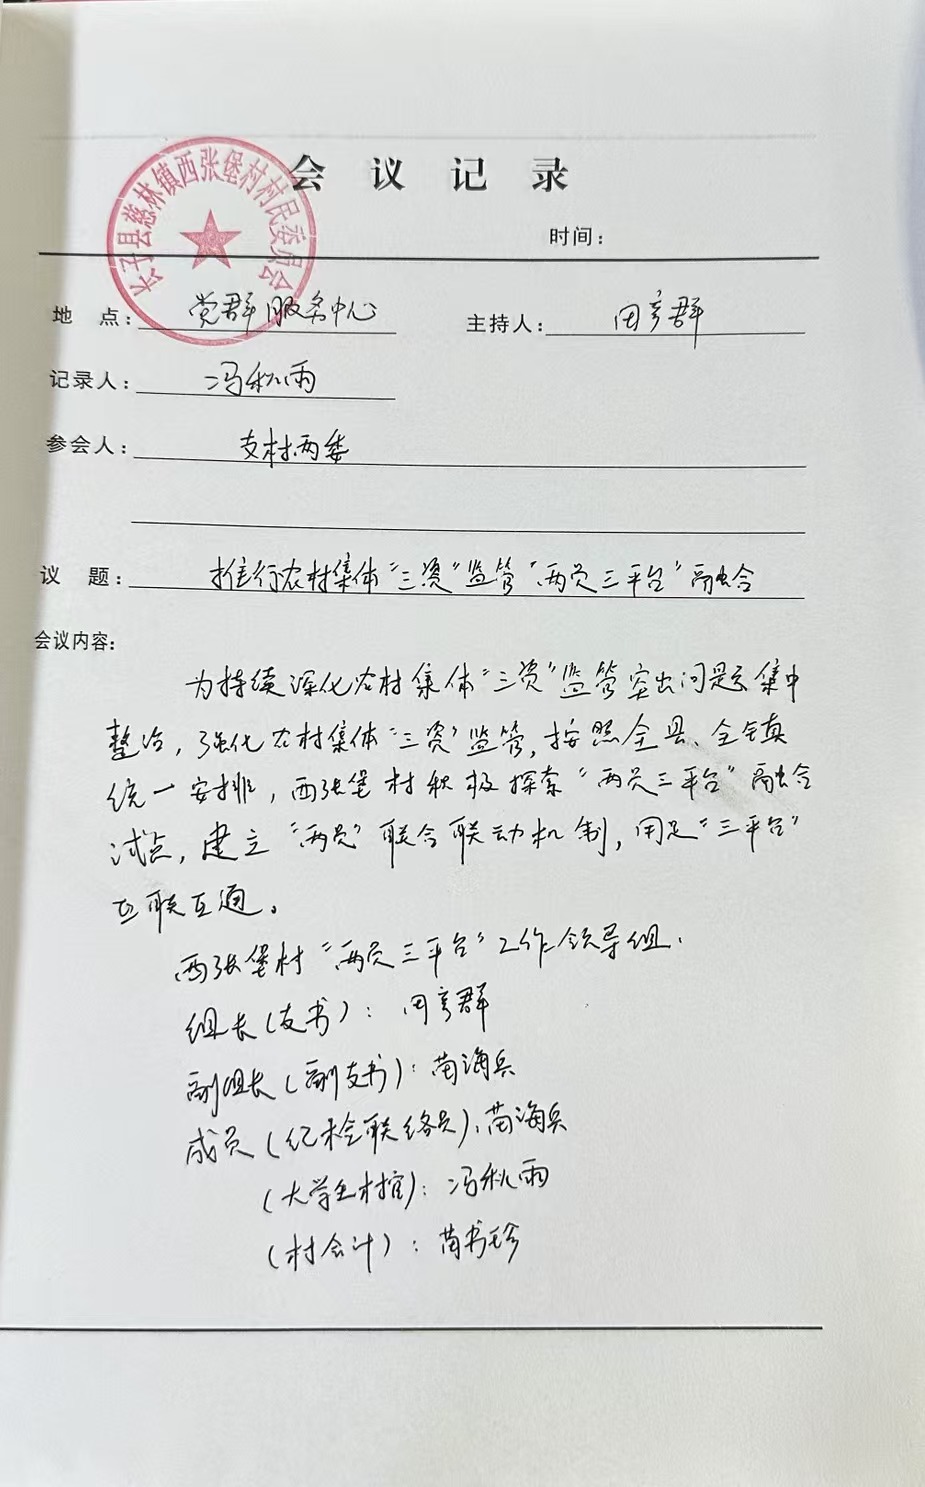 会议记录
长子县慈林镇西张堡村村民委员会
时间：
地 点：党群服务中心 主持人：田彦群
记录人：冯秋雨
参会人：支村两委
议 题：推行农村集体“三资”监管“两员三平台”融合
会议内容：
为持续深化农村集体“三资”监管突出问题集中
整治，强化农村集体“三资”监管，按照全县、全镇
统一安排，西张堡村积极探索“两员三平台”融合
试点，建立“两员”联合联动机制，用足“三平台”
互联互通。
西张堡村“两员三平台”工作领导组．
组长（支书）：田彦群
副组长（副支书）：苗海兵
成员（纪检联络员）：苗海兵
（大学生村官）：冯秋雨
（村会计）：苗书珍